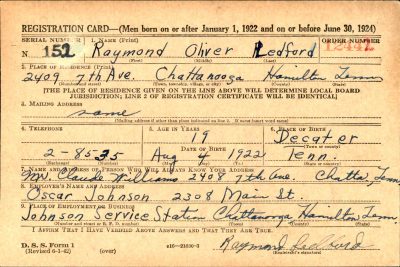 REGISTRATION CARD—(Men born on or after January 1, 1922 and on or before June 30, 1924)
SERIAL NUMBER 1. NAME (Print) ORDER NUMBER
N 152 Raymond Oliver Ledford 12442
(First) (Middle) (Last)
2. PLACE OF RESIDENCE (Print)
2409 7th Ave. Chattanooga Hamilton Tenn
[THE PLACE OF RESIDENCE GIVEN ON THE LINE ABOVE WILL DETERMINE LOCAL BOARD
JURISDICTION; LINE 2 OF REGISTRATION CERTIFICATE WILL BE IDENTICAL]
3. MAILING ADDRESS
same
[Mailing address if other than place indicated on line 2. If same insert word same]
4. TELEPHONE 5. AGE IN YEARS 6. PLACE OF BIRTH
19 Decater
DATE OF BIRTH
2-8535 Aug 4 1922 Tenn.
(Exchange) (Number) (Mo.) (Day) (Yr.)
7. NAME AND ADDRESS OF PERSON WHO WILL ALWAYS KNOW YOUR ADDRESS
Mr. Claude Williams 2408 7th Ave. Chatta, Tenn,
8. EMPLOYER'S NAME AND ADDRESS
Oscar Johnson 2308 Main St.
9. PLACE OF EMPLOYMENT OR BUSINESS
Johnson Service Station Chattanooga Hamilton Tenn,
(Number and street or R. F. D. number) (Town) (County) (State)
I AFFIRM THAT I HAVE VERIFIED ABOVE ANSWERS AND THAT THEY ARE TRUE.
D. S. S. Form 1
(Revised 6-1-42) (over) Raymond Ledford
(Registrant's signature)